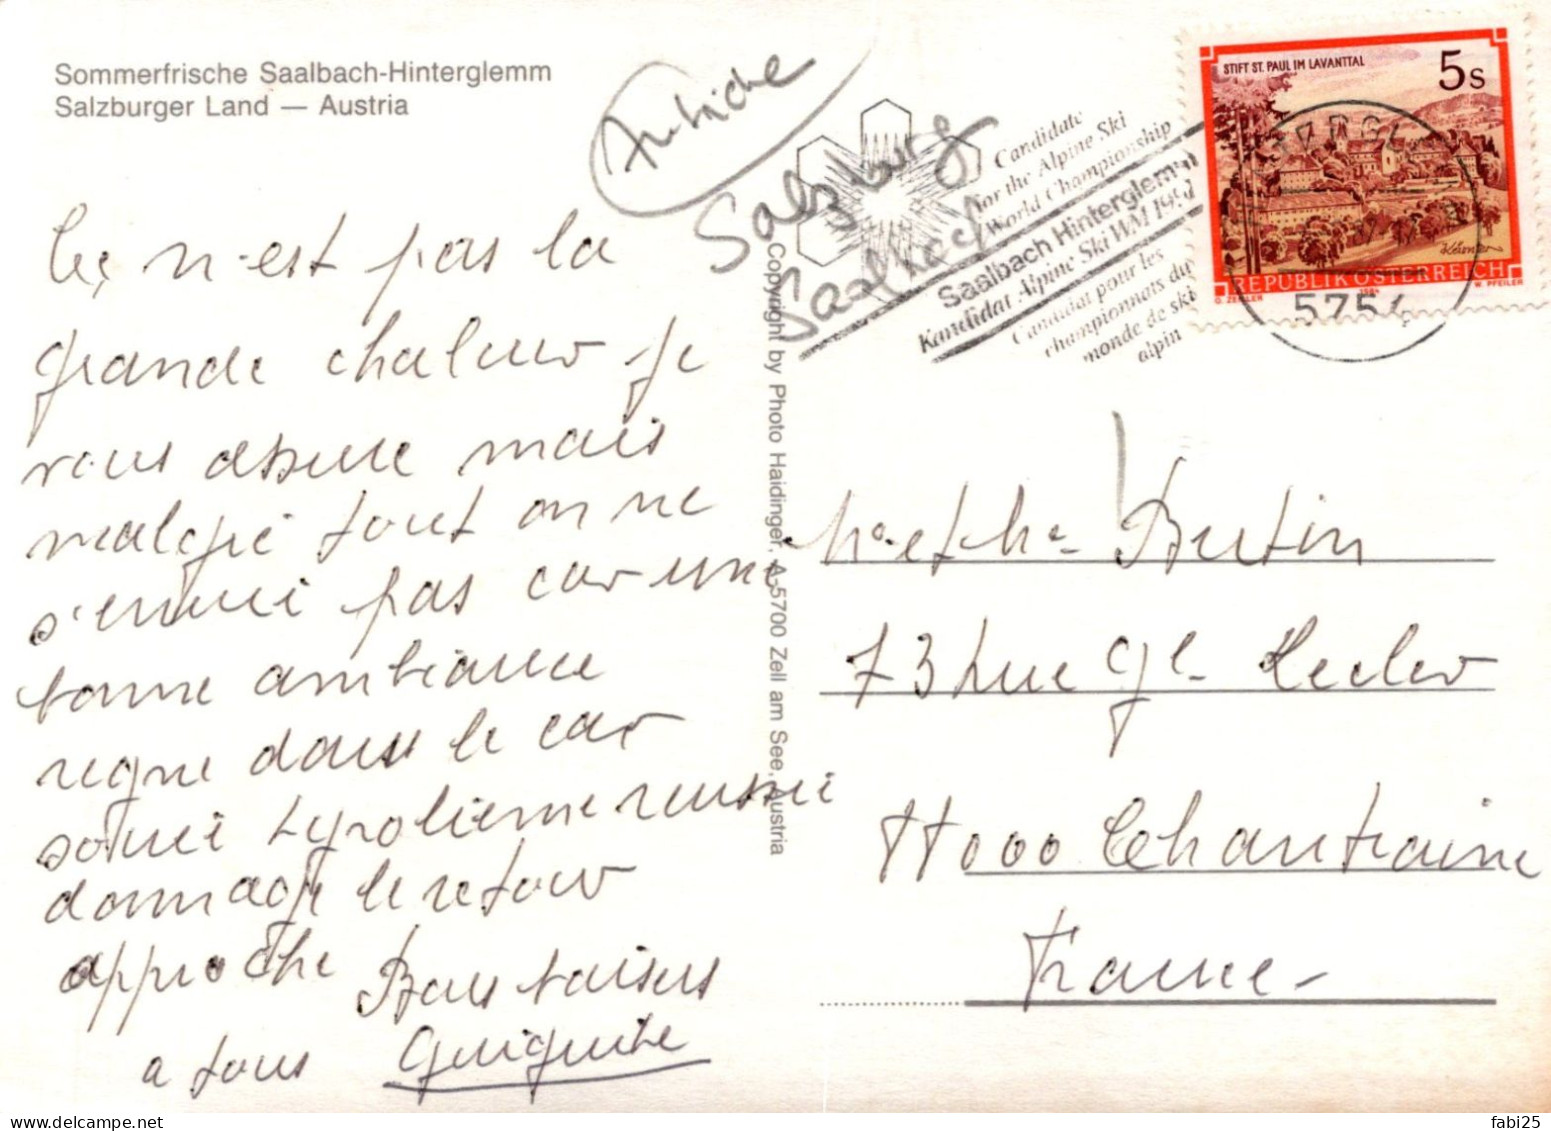 Sommerfrische Saalbach-Hinterglemm
Salzburger Land — Austria
Autriche
Salzburg
Saalbach
Ce n'est pas la
grande chaleur je
vous assure mais
malgré tout on ne
s'ennui pas car une
bonne ambiance
regne dans le car
soirée tyrolienne reussie
dommage le retour
approche Bons baisers
a tous
Copyright by Photo Haidinger, A-5700 Zell am See, Austria
Candidate
for the Alpine Ski
World Championship
Saalbach Hinterglemm
Kandidat Alpine Ski WM 1991
Candidat pour les
championnats du
monde de ski
alpin
STIFT ST. PAUL IM LAVANTTAL
5s
REPUBLIK ÖSTERREICH
O. ZEILLER 1984 W. PFEILER
5754
Bertin
73 rue Gl Leclerc
88000 Chantraine
France
fabi25